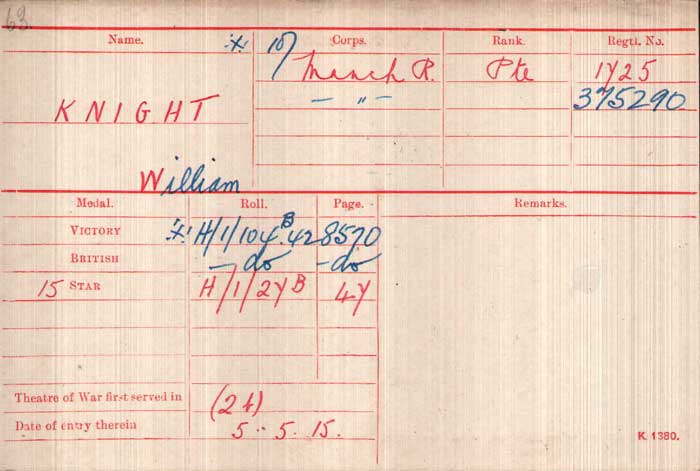 63
Name. Corps. Rank. Regtl. No.
10/ Manch R. Pte 1725
— " — 375290
KNIGHT
William
Medal. Roll. Page. Remarks.
VICTORY H/1/104.B.42 8570
BRITISH — do — do
15 STAR H/1/27B 47
Theatre of War first served in (2b)
Date of entry therein 5.5.15.
K. 1380.